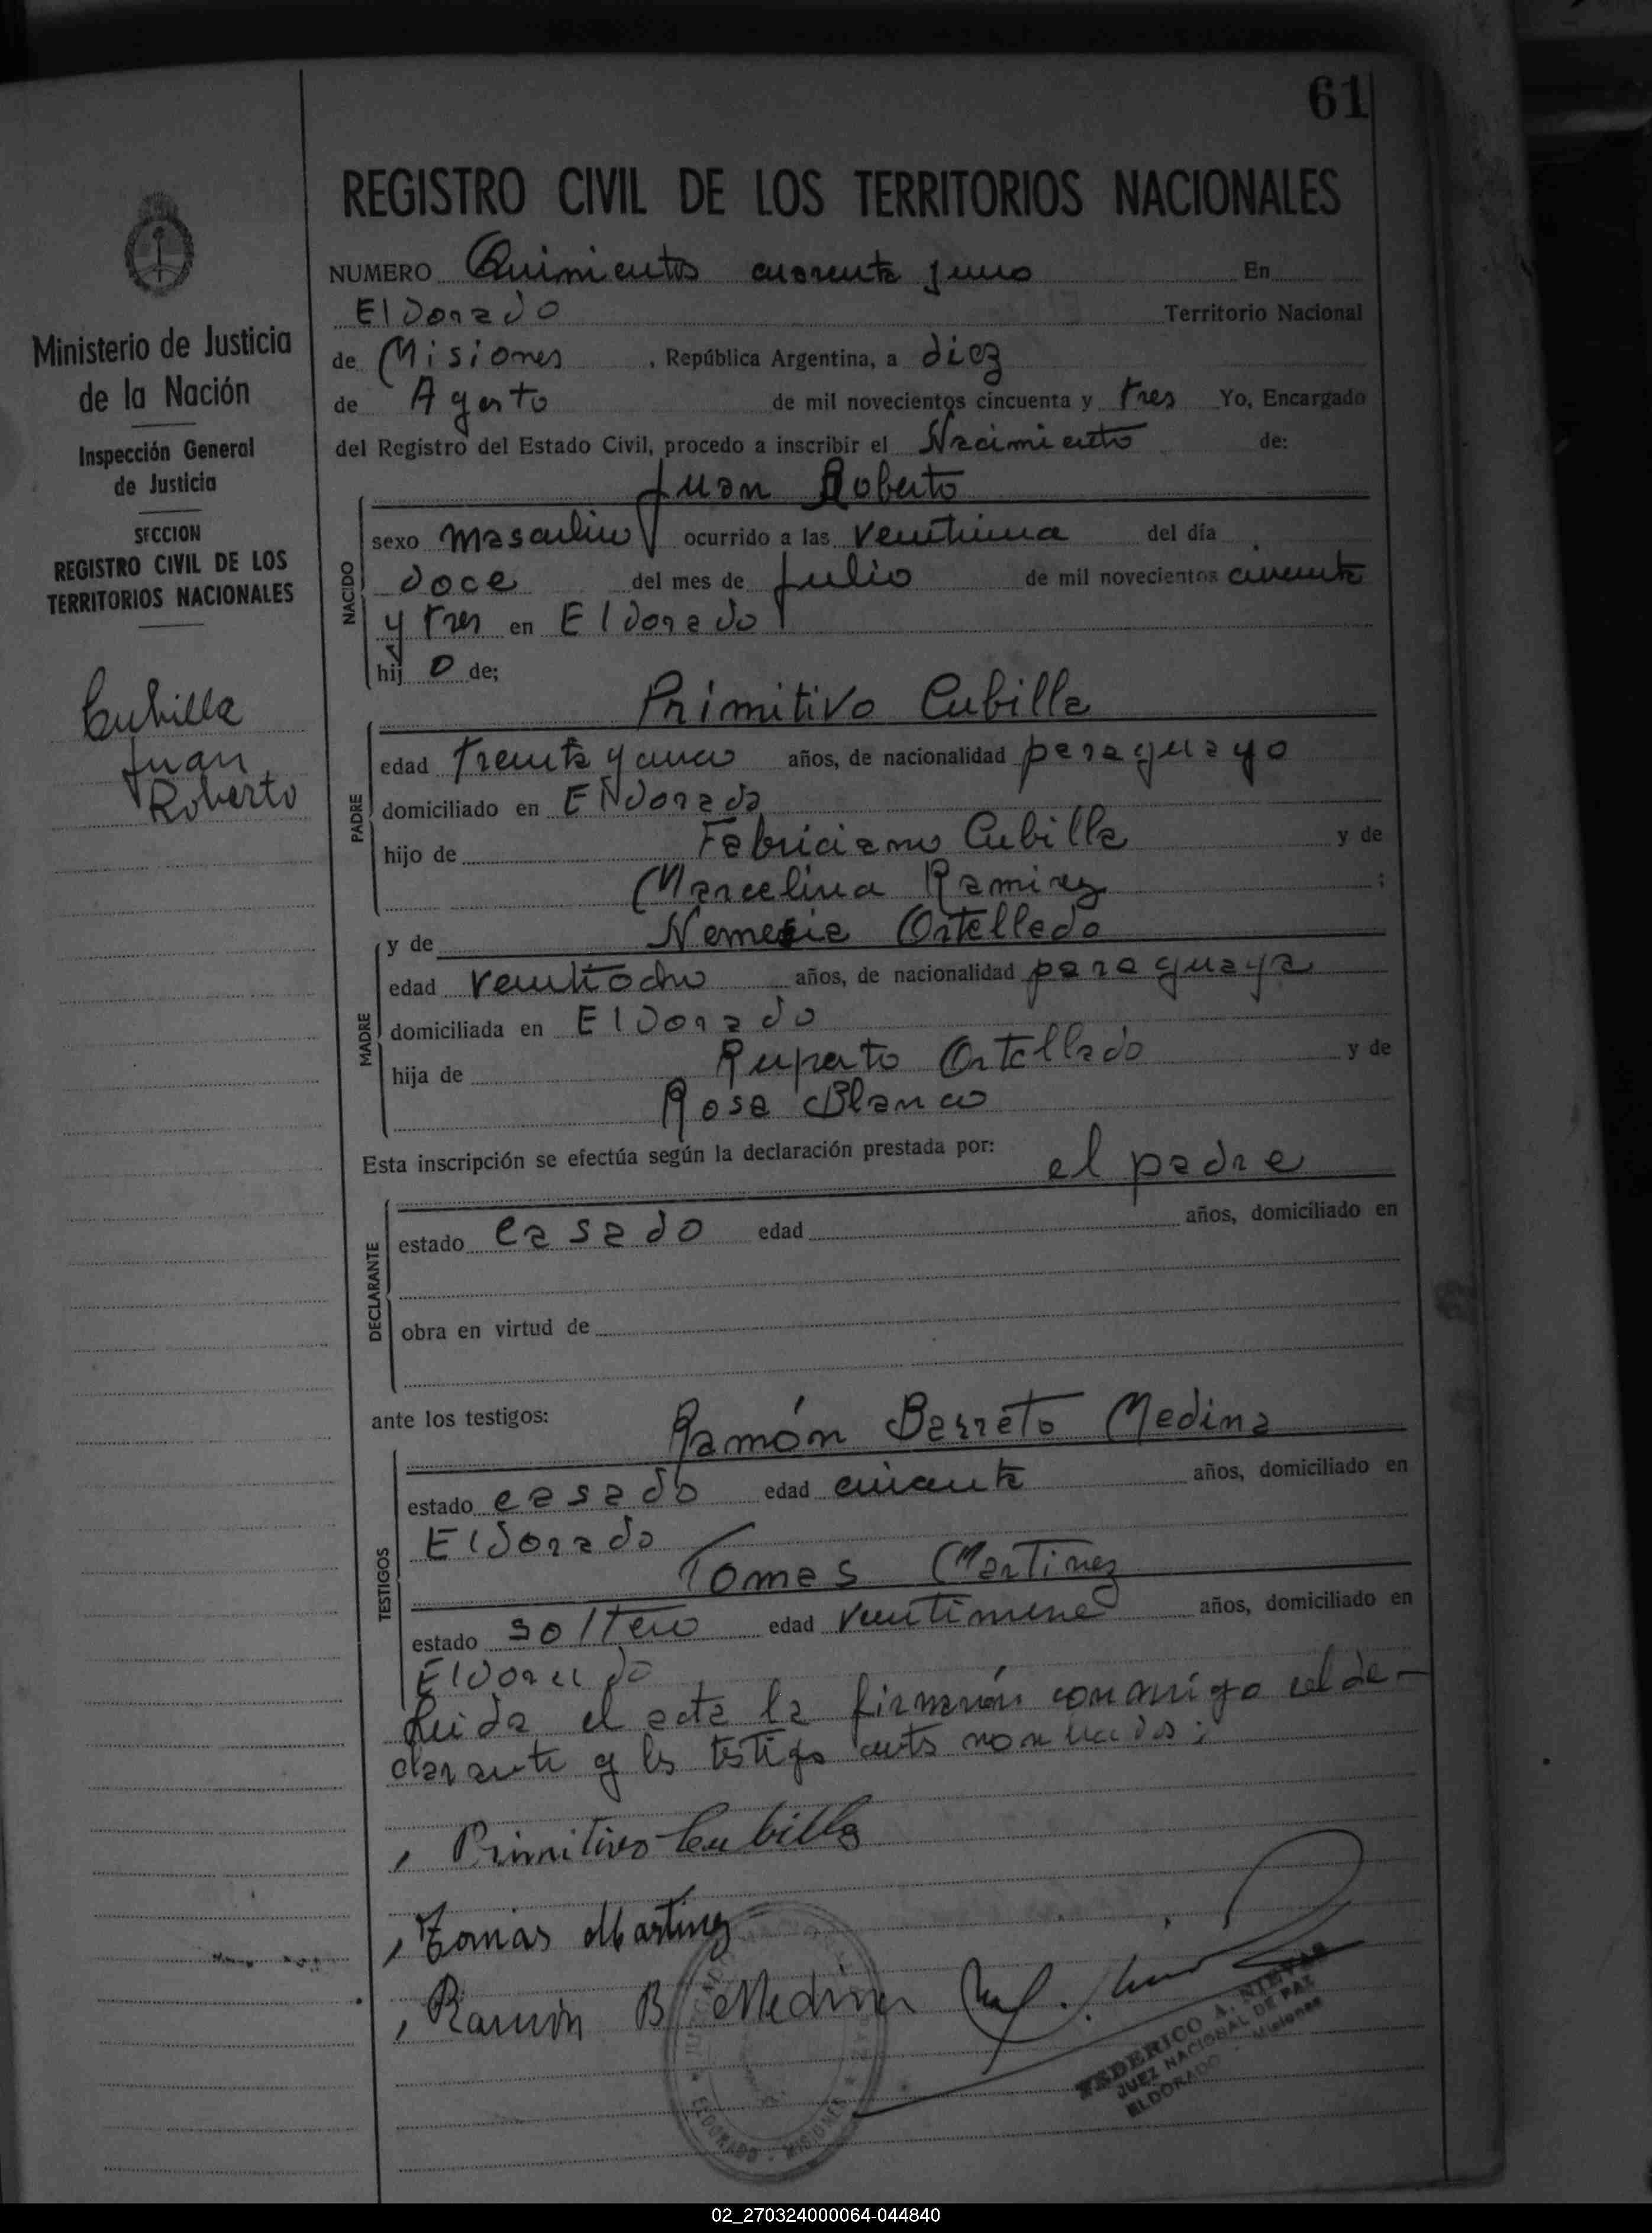 61
REGISTRO CIVIL DE LOS TERRITORIOS NACIONALES
Ministerio de Justicia
de la Nación
Inspección General
de Justicia
SECCION
REGISTRO CIVIL DE LOS
TERRITORIOS NACIONALES
Cubilla
Juan
Roberto
NUMERO Quinientos cuarenta y uno En
Eldorado Territorio Nacional
de Misiones , República Argentina, a diez
de Agosto de mil novecientos cincuenta y tres Yo, Encargado
del Registro del Estado Civil, procedo a inscribir el Nacimiento de:
Juan Roberto
NACIDO
sexo masculino ocurrido a las veintiuna del día
doce del mes de Julio de mil novecientos cincuenta
y tres en Eldorado
hij o de;
Primitivo Cubilla
PADRE
edad treinta y cinco años, de nacionalidad paraguayo
domiciliado en Eldorado
hijo de Fabriciano Cubilla y de
Marcelina Ramirez ;
MADRE
y de Nemesia Ortellado
edad veintiocho años, de nacionalidad paraguaya
domiciliada en Eldorado
hija de Ruperto Ortellado y de
Rosa Blanco
Esta inscripción se efectúa según la declaración prestada por: el padre
DECLARANTE
estado casado edad años, domiciliado en
obra en virtud de
ante los testigos: Ramón Barreto Medina
TESTIGOS
estado casado edad cincuenta años, domiciliado en
Eldorado
Tomas Martinez
estado soltero edad años, domiciliado en
Eldorado
Leida el acta la firmarón conmigo el de-
clarante y los testigo ants nombrados;
Primitivo Cubilla
Tomas Martinez
Ramón B Medina
FEDERICO A. NIEVAS
JUEZ NACIONAL DE PAZ
ELDORADO - Misiones
ELDORADO - MISIONES
02_270324000064-044840